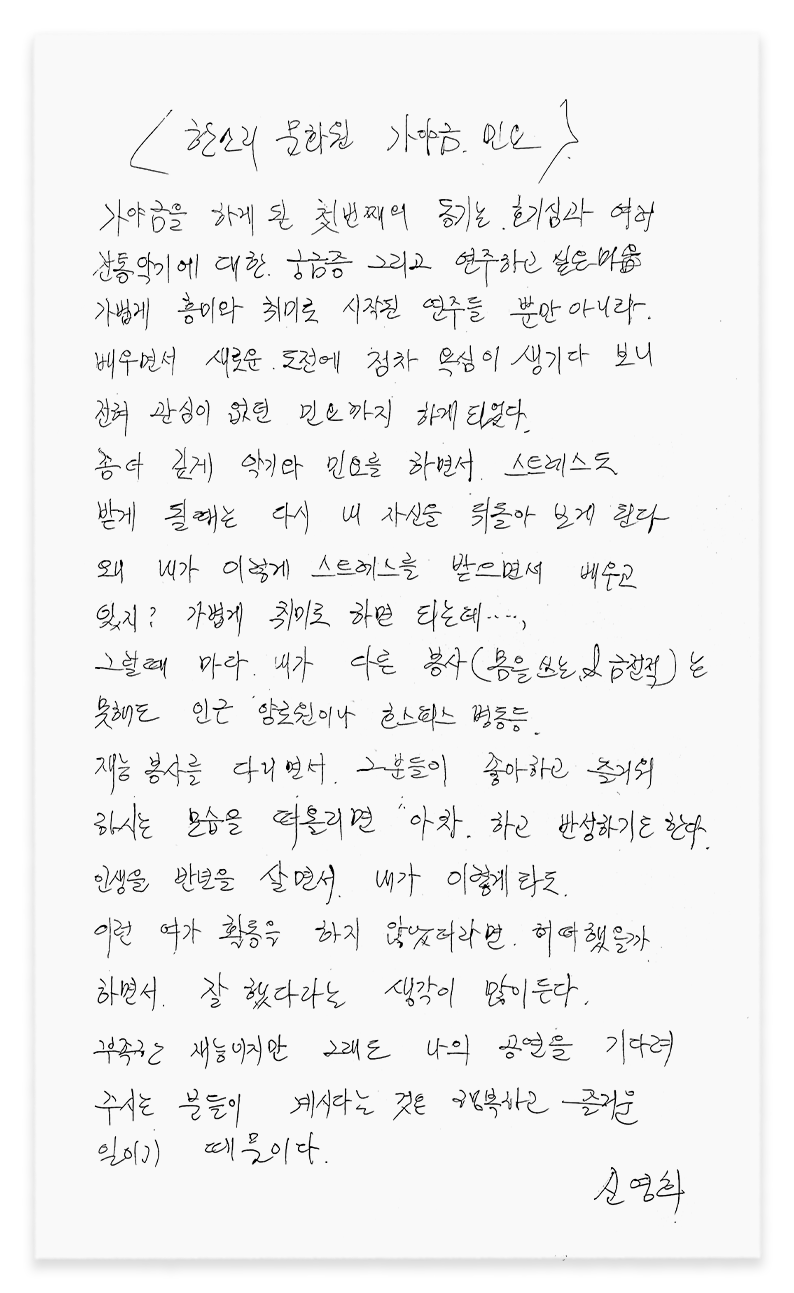 < 한소리 문화원 가야금. 민요 >
가야금을 하게 된 첫번째의 동기는 호기심과 여러
전통악기에 대한. 궁금증 그리고 연주하고 싶은마음
가볍게 흥미와 취미로 시작된 연주들 뿐만 아니라.
배우면서 새로운 도전에 점차 욕심이 생기다 보니
전혀 관심이 없던 민요까지 하게 되었다.
좀더 깊게 악기와 민요를 하면서. 스트레스도
받게 될때는 다시 내 자신을 뒤돌아 보게 된다
왜 내가 이렇게 스트레스를 받으면서 배우고
있지? 가볍게 취미로 하면 되는데....,
그럴때 마다. 내가 다른 봉사(몸을 쓰는, 금전적)는
못해도 인근 양로원이나 호스피스 병동등.
재능 봉사를 다니면서. 그분들이 좋아하고 즐거워
하시는 모습을 떠올리면 "아차. 하고 반성하기도 한다.
인생을 반년을 살면서. 내가 이렇게라도.
이런 여가 활동을 하지 않았더라면. 어떠했을까
하면서. 잘 했다라는 생각이 많이든다.
부족한 재능이지만 그래도 나의 공연을 기다려
주시는 분들이 계시다는 것은 행복하고 즐거운
일이기 때문이다.
신영희